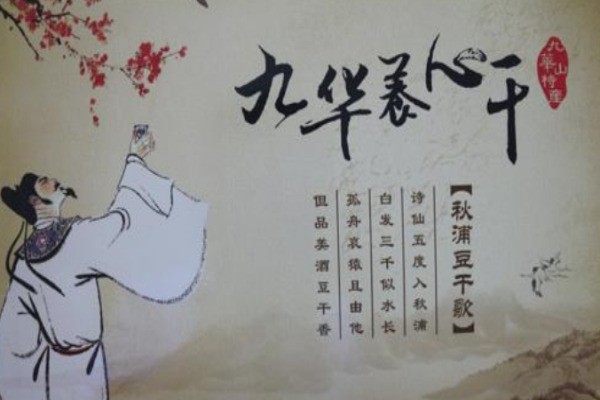 九华养心干
九華山特産
【秋浦豆干歌】
诗仙五度入秋浦
白发三千似水长
孤舟哀猿且由他
但品美酒豆干香